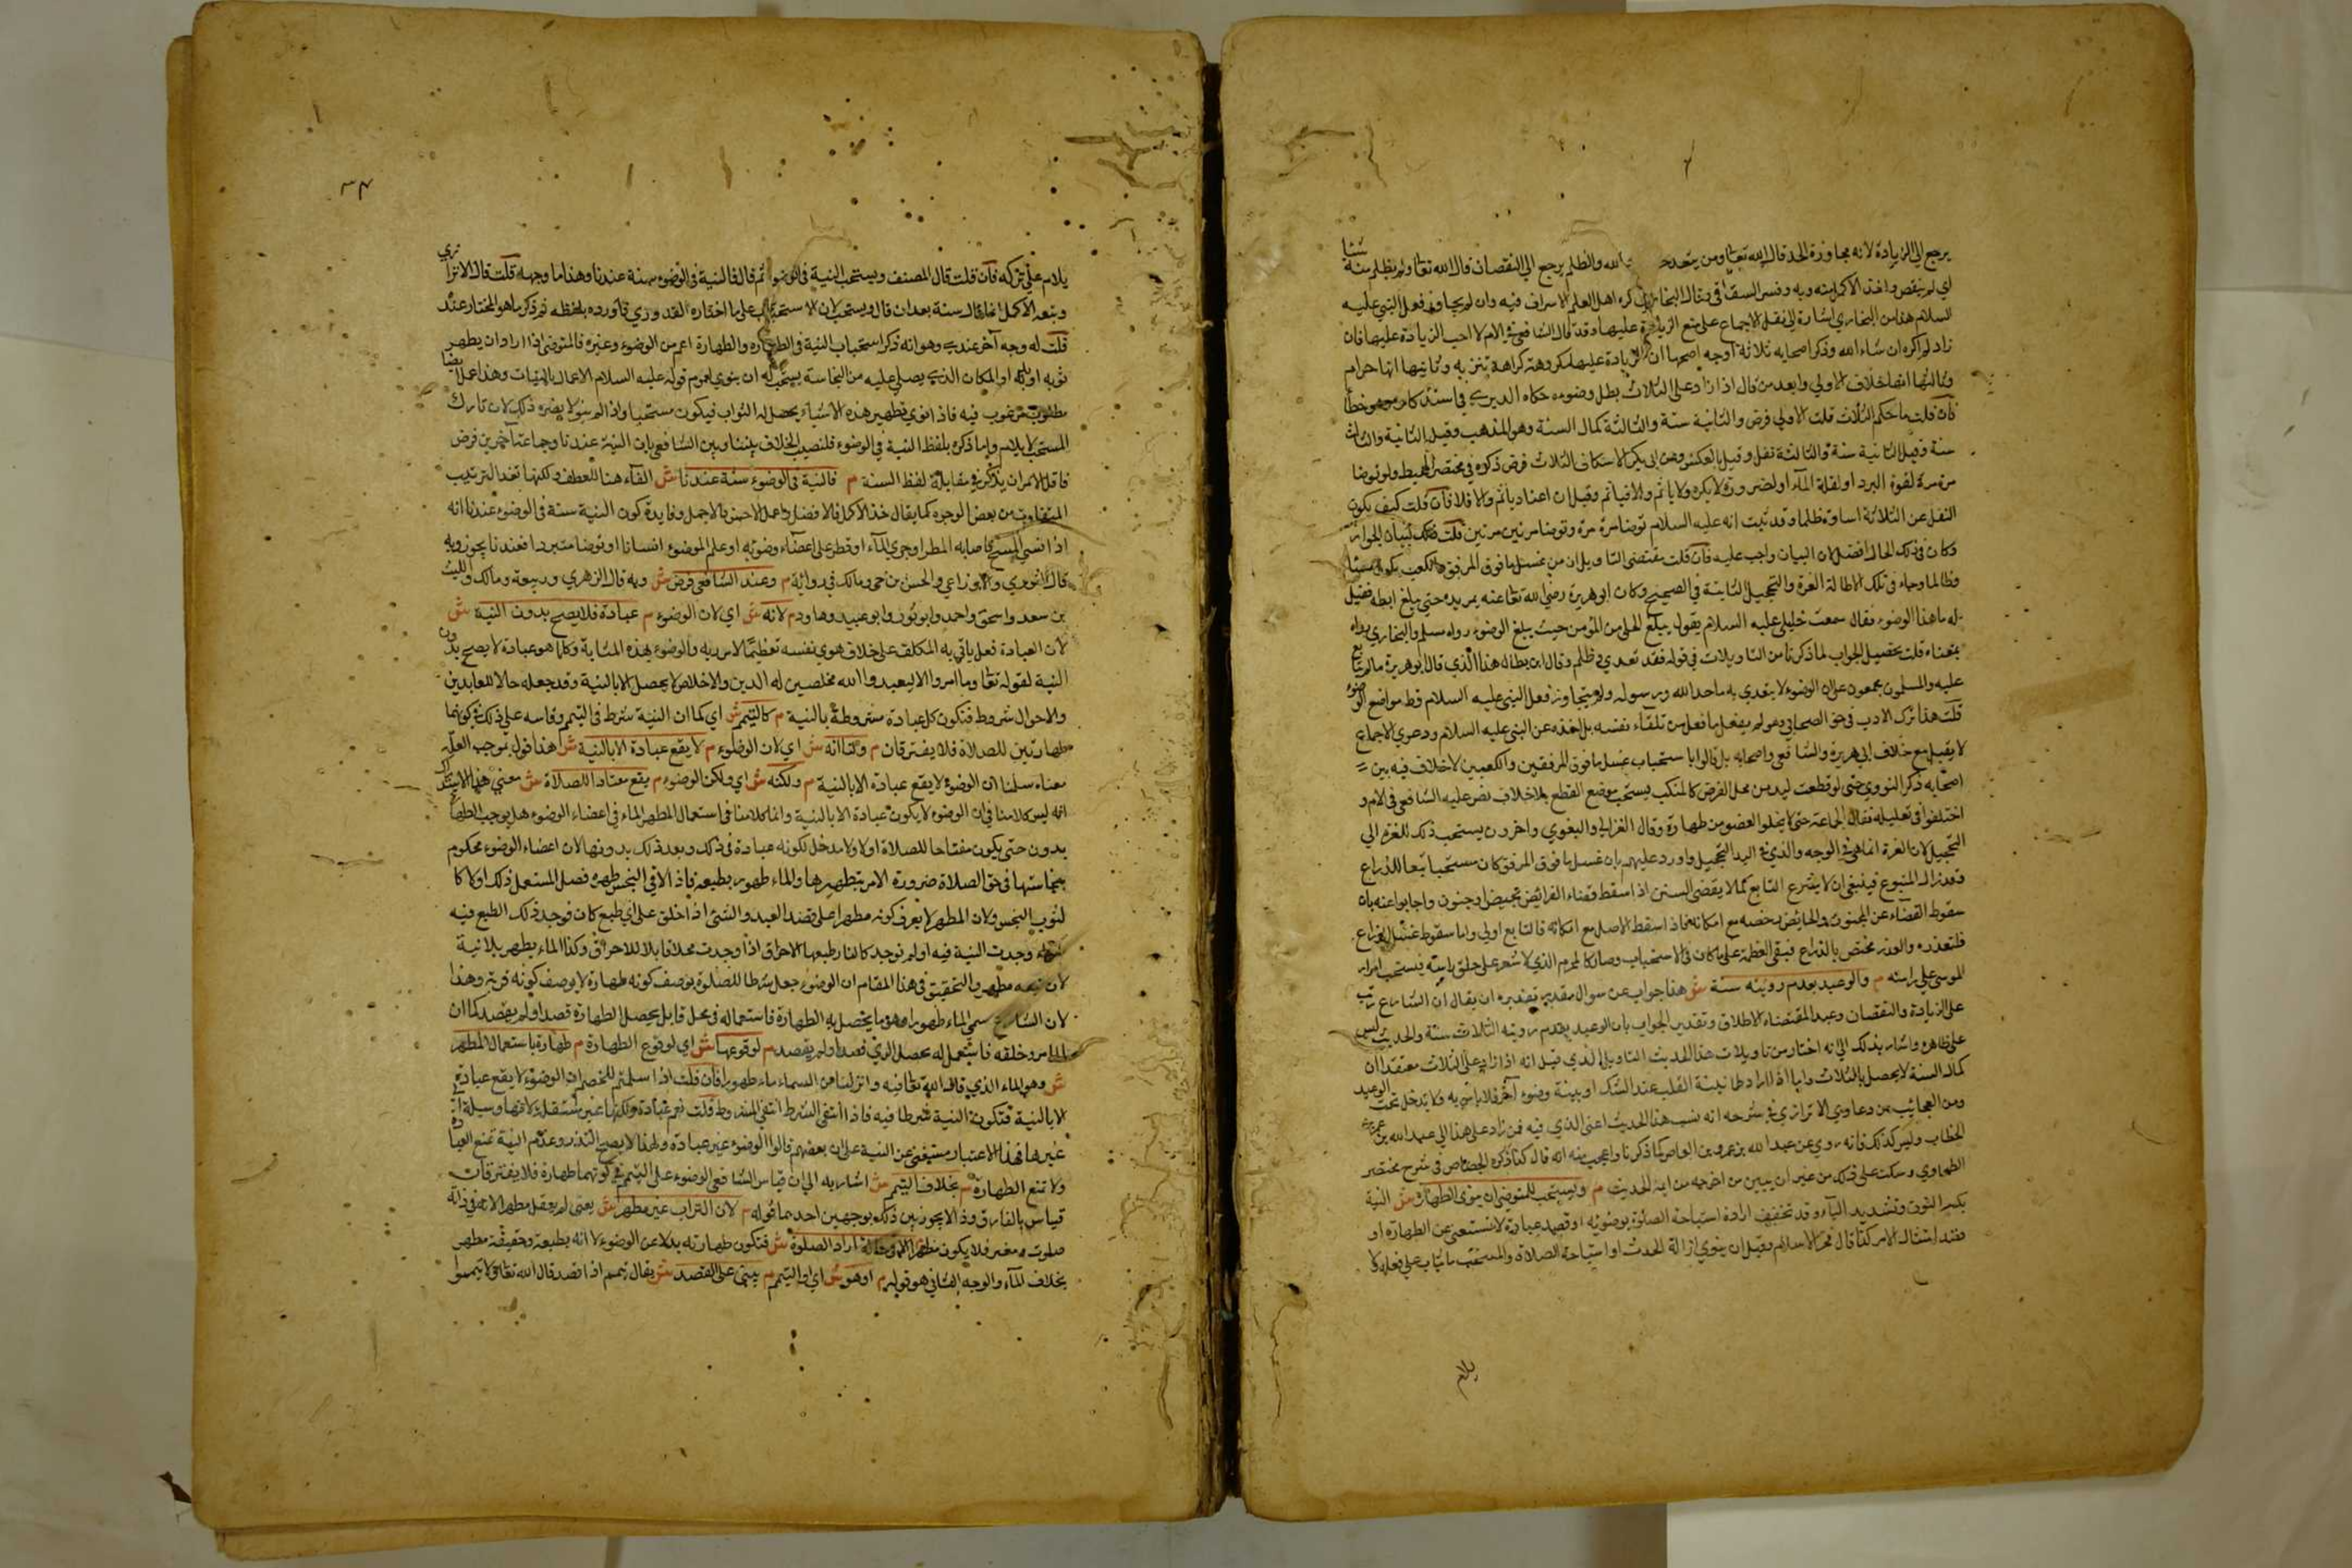 يرجع الي الزيادة لانه مجاوزة الحد قال الله تعالي ومن يتعد حدود الله والظلم يرجع الي النقصان قال الله تعالي ولم تظلم منه شيئا
اي لم ينقص واخذ الاكمل منه وبه وفسر السغناقي وقال البخاري كره اهل العلم الاسراف فيه وان لم يجاوز فعل النبي عليه
السلام هذا من البخاري اشارة الي نقل الاجماع علي منع الزيادة عليها وقد قال الشافعي في الام لا احب الزيادة عليها فان
زاد لم اكره ان شاء الله وذكر اصحابه ثلاثة اوجه اصحها ان الزيادة عليها مكروهة كراهة تنزيه وثانيها انها حرام
وثالثها انها خلاف الاولي وابعد من قال اذا زاد علي الثلاث بطل وضوءه حكاه الدارمي في استذكاره وهو خطأ
فان قلت ما حكم الثلاث قلت الاولي فرض والثانية سنة والثالثة كمال السنة وهو المذهب وقيل الثانية والثالثة
سنة وقيل الثانية سنة والثالثة نفل وقيل بالعكس وعن ابي بكر الاسكاف الثلاث فرض ذكره في مختصر المحيط ولو توضا
مرة مرة لقوة البرد او لقلة الماء او لضرورة لا يكره ولا ياثم والا فياثم وقيل ان اعتاد ياثم والا فلا فان قلت كيف يكون
النقل عن الثلاثة اساءة وظلما وقد ثبت انه عليه السلام توضا مرة مرة وتوضا مرتين مرتين قلت ذلك لبيان الجواز
وكان في ذلك الحال افضل لان البيان واجب عليه فان قلت مقتضي التاويل ان من غسل ما فوق المرفق والكعب يكون مسيئا
وظالما وجاء في تلك الاطالة الغرة والتحجيل الثابتة في الصحيح وكان ابو هريرة رضي الله تعالي عنه يمر يده حتي يبلغ ابطه فقيل
له ما هذا الوضوء فقال سمعت خليلي عليه السلام يقول يبلغ الحلي من المؤمن حيث يبلغ الوضوء رواه مسلم والبخاري رواه
بمعناه قلت تحصيل الجواب لما ذكرنا من التاويلات في قوله فقد تعدي وظلم وقال ابن بطال هذا الذي قال ابو هريرة ما لم يتابع
عليه والمسلمون مجمعون علي ان الوضوء لا يتعدي به ما حد الله ورسوله ولم يتجاوز فعل النبي عليه السلام قط مواضع الوضوء
قلت هذا ترك الادب في حق الصحابي وهو لم يفعل ما فعل من تلقاء نفسه بل اخذه عن النبي عليه السلام ودعوي الاجماع
لا يقبل مع خلاف ابي هريرة والشافعي واصحابه بل قالوا باستحباب غسل ما فوق المرفقين والكعبين لا خلاف فيه بين
اصحابه ذكر النووي حتي لو قطعت اليد من محل الفرض كالمنكب يستحب موضع القطع بلا خلاف نص عليه الشافعي في الام و
اختلفوا في تعليله فقال الجماعة حتي لا يخلو العضو من طهارة وقال الغزالي والبغوي واخرون يستحب ذلك للغرة الي
التحجيل لان الغرة انما هي في الوجه والذي في اليد التحجيل واورد عليهم بان غسل ما فوق المرفق كان مستحبا تبعا للذراع
وقد زال المتبوع فينبغي ان لا يشرع التابع كما لا يقضي السنن اذا سقط قضاء الفرائض بحيض او جنون واجابوا عنه بان
سقوط القضاء عن المجنون والحايض رخصة مع امكانه فاذا سقط الاصل مع امكانه فالتابع اولي واما سقوط غسل الذراع
فلتعذره والعذر مختص بالذراع فبقي العظمة علي ما كان في الاستحباب وصار كالمحرم الذي لا شعر علي حلق راسه فيستحب امرار
الموسي علي راسه م والوعيد بعدم رؤيته سنة ش هذا جواب عن سوال مقدر تقديره ان يقال ان الشارع رتب
علي الزيادة والنقصان وعيدا لمقتضاء الاطلاق وتقدير الجواب بان الوعيد بعدم رويته الثلاث سنة والحديث ليس
علي ظاهره واشار بذلك الي انه اختار من تاويلات هذا الحديث التاويل الذي قيل انه اذا زاد علي الثلاث معتقدا ان
كمال السنة لا يحصل بالثلاث واما اذا اراد طمانينة القلب عند الشك او بنية وضوء آخر فلا باس به ولا يدخل تحت الوعيد
ومن العجائب من دعاوي الاترازي في شرحه انه نسب هذا الحديث اعني الذي فيه فمن زاد علي هذا الي عبد الله بن عمر
الخطاب وليس كذلك فانه روي عن عبد الله بن عمرو بن العاص كما ذكرنا واعجب منه انه قال كذا ذكره الجصاص في شرح مختصر
الطحاوي وسكت علي ذلك من غير ان يبين من اخرجه من ايمة الحديث م ويستحب للمتوضئ ان ينوي الطهارة ش النية
بكسر النون وتشديد الياء وقد تخفف ارادة استباحة الصلوة بوضوئه او قصد عبادة لا تستغني عن الطهارة او
قصد امتثال الامر كذا قال فخر الاسلام وقيل ان ينوي ازالة الحدث او استباحة الصلاة والمستحب ما يثاب علي فعله ولا
يلام
٣٤
يلام علي تركه فان قلت قال المصنف ويستحب النية في الوضوء ثم قال فالنية في الوضوء سنة عندنا وهذا ما وجهه قلت قال الاترازي
وتبعه الاكمل انما قال سنة بعد ان قال ويستحب لان الاستحباب علي ما اختاره القدوري فاورده بلفظه ثم ذكر ما هو المختار عنده
قلت له وجه آخر عندي وهو انه ذكر استحباب النية في الطهارة والطهارة اعم من الوضوء وغيره فالمتوضئ اذا اراد ان يطهر
ثوبه او بدنه او المكان الذي يصلي عليه من النجاسة يستحب له ان ينوي لعموم قوله عليه السلام الاعمال بالنيات وهذا عمل ايضا
مطلوب مرغوب فيه فاذا نوي تطهير هذه الاشياء يحصل له الثواب فيكون مستحبا واذا لم ينو لا يضره ذلك لان تارك
المستحب لا يلام وانما ذكره بلفظ النية في الوضوء فلنصب الخلاف بيننا وبين الشافعي بان النية عندنا وجماعة آخرين فرض
فاقل الامر ان يذكر في مقابلة لفظ السنة م فالنية في الوضوء سنة عندنا ش الفاء هنا للعطف ولكنها تفيد الترتيب
المتفاوت من بعض الوجوه كما يقال خذ الاكمل فالافضل واعمل الاحسن فالاجمل وفايدة كون النية سنة في الوضوء عندنا انه
اذا نسي المسح فاصابه المطر او جري الماء او قطر علي اعضاء وضوئه او علم الوضوء انسانا او توضا متبردا فعندنا يجوز وبه
قال الثوري والاوزاعي والحسن بن حي ومالك في رواية م وعند الشافعي فرض ش وبه قال الزهري وربيعة ومالك والليث
بن سعد واسحق واحمد وابو ثور وابو عبيد وداود م لانه ش اي لان الوضوء م عبادة فلا يصح بدون النية ش
لان العبادة فعل ياتي به المكلف علي خلاف هوي نفسه تعظيما لامر ربه والوضوء بهذه المثابة وكلما هو عبادة لا يصح بدون
النية لقوله تعالي وما امروا الا ليعبدوا الله مخلصين له الدين والاخلاص لا يحصل الا بالنية وقد جعله حالا للعابدين
والاحوال شروط فتكون كل عبادة مشروطة بالنية م كالتيمم ش اي كما ان النية شرط في التيمم وقاسه علي ذلك في كونهما
طهارتين للصلاة فلا يفترقان م ولنا انه ش اي لان الوضوء م لا يقع عبادة الا بالنية ش هذا قول بموجب العلة
معناه سلمنا ان الوضوء لا يقع عبادة الا بالنية م ولكنه ش اي ولكن الوضوء م يقع مفتاحا للصلاة ش معني هذا الاستدراك
انه ليس كلامنا في ان الوضوء لا يكون عبادة الا بالنية وانما كلامنا في استعمال المطهر الماء في اعضاء الوضوء هل يوجب الطهارة
بدون حتي يكون مفتاحا للصلاة اولا ولا مدخل لكونه عبادة في ذلك وبعد ذلك بدونها لان اعضاء الوضوء محكوم
بنجاستها في حق الصلاة ضرورة الامر بتطهيرها والماء طهور بطبعه فاذا لاقي النجس طهره قصد المستعمل ذلك اولا كا
لثوب النجس ولان المطهر لا يعرف كونه مطهرا علي قصد العبد والشئ اذا خلق علي اي طبع كان فوجد ذلك الطبع فيه
سواء وجدت النية فيه او لم توجد كالنار طبعها الاحراق اذا وجدت محلا قابلا للاحراق وكذا الماء يطهر بلا نية
لان طبعه مطهر والتحقيق في هذا المقام ان الوضوء جعل شرطا للصلوة بوصف كونه طهارة لا بوصف كونه قربة وهذا
لان الشارع سمي الماء طهورا وهو ما يحصل به الطهارة فاستعماله في محل قابل يحصل الطهارة قصد او لم يقصد كما ان
الماء مرو خلقه فاستعمل له يحصل الري قصد او لم يقصد م لوقوعها ش اي لوقوع الطهارة م طهارة باستعمال المطهر
ش وهو الماء الذي قال الله تعالي فيه وانزلنا من السماء ماء طهورا فان قلت اذا سلمتم للخصم ان الوضوء لا يقع عبادة
الا بالنية فتكون النية شرطا فيه فاذا انتفي الشرط انتفي المشروط قلت نعم عبادة ولكنها غير مستقلة لانها وسيلة الي
غيرها فهذا الاعتبار مستغني عن النية علي ان بعضهم قالوا الوضوء غير عبادة ولهذا لا يصح النذر وعدم النية تمنع العبادة
ولا تمنع الطهارة م بخلاف التيمم ش اشار به الي ان قياس الشافعي الوضوء علي التيمم في كونهما طهارة فلا يفترقان
قياس بالفارق وذا لا يجوز بين ذلك بوجهين احدهما قوله م لان التراب غير مطهر ش يعني لم يعقل مطهرا لانه في ذاته
ملوث ومغبر فلا يكون مطهرا الا في حالة ارادة الصلوة ش فتكون طهارته بدلا عن الوضوء لا انه بطبعه وحقيقته مطهر
بخلاف الماء والوجه الثاني هو قوله م او هو ش اي او التيمم م يبني علي القصد ش يقال تيمم اذا قصد قال الله تعالي ولا تيمموا